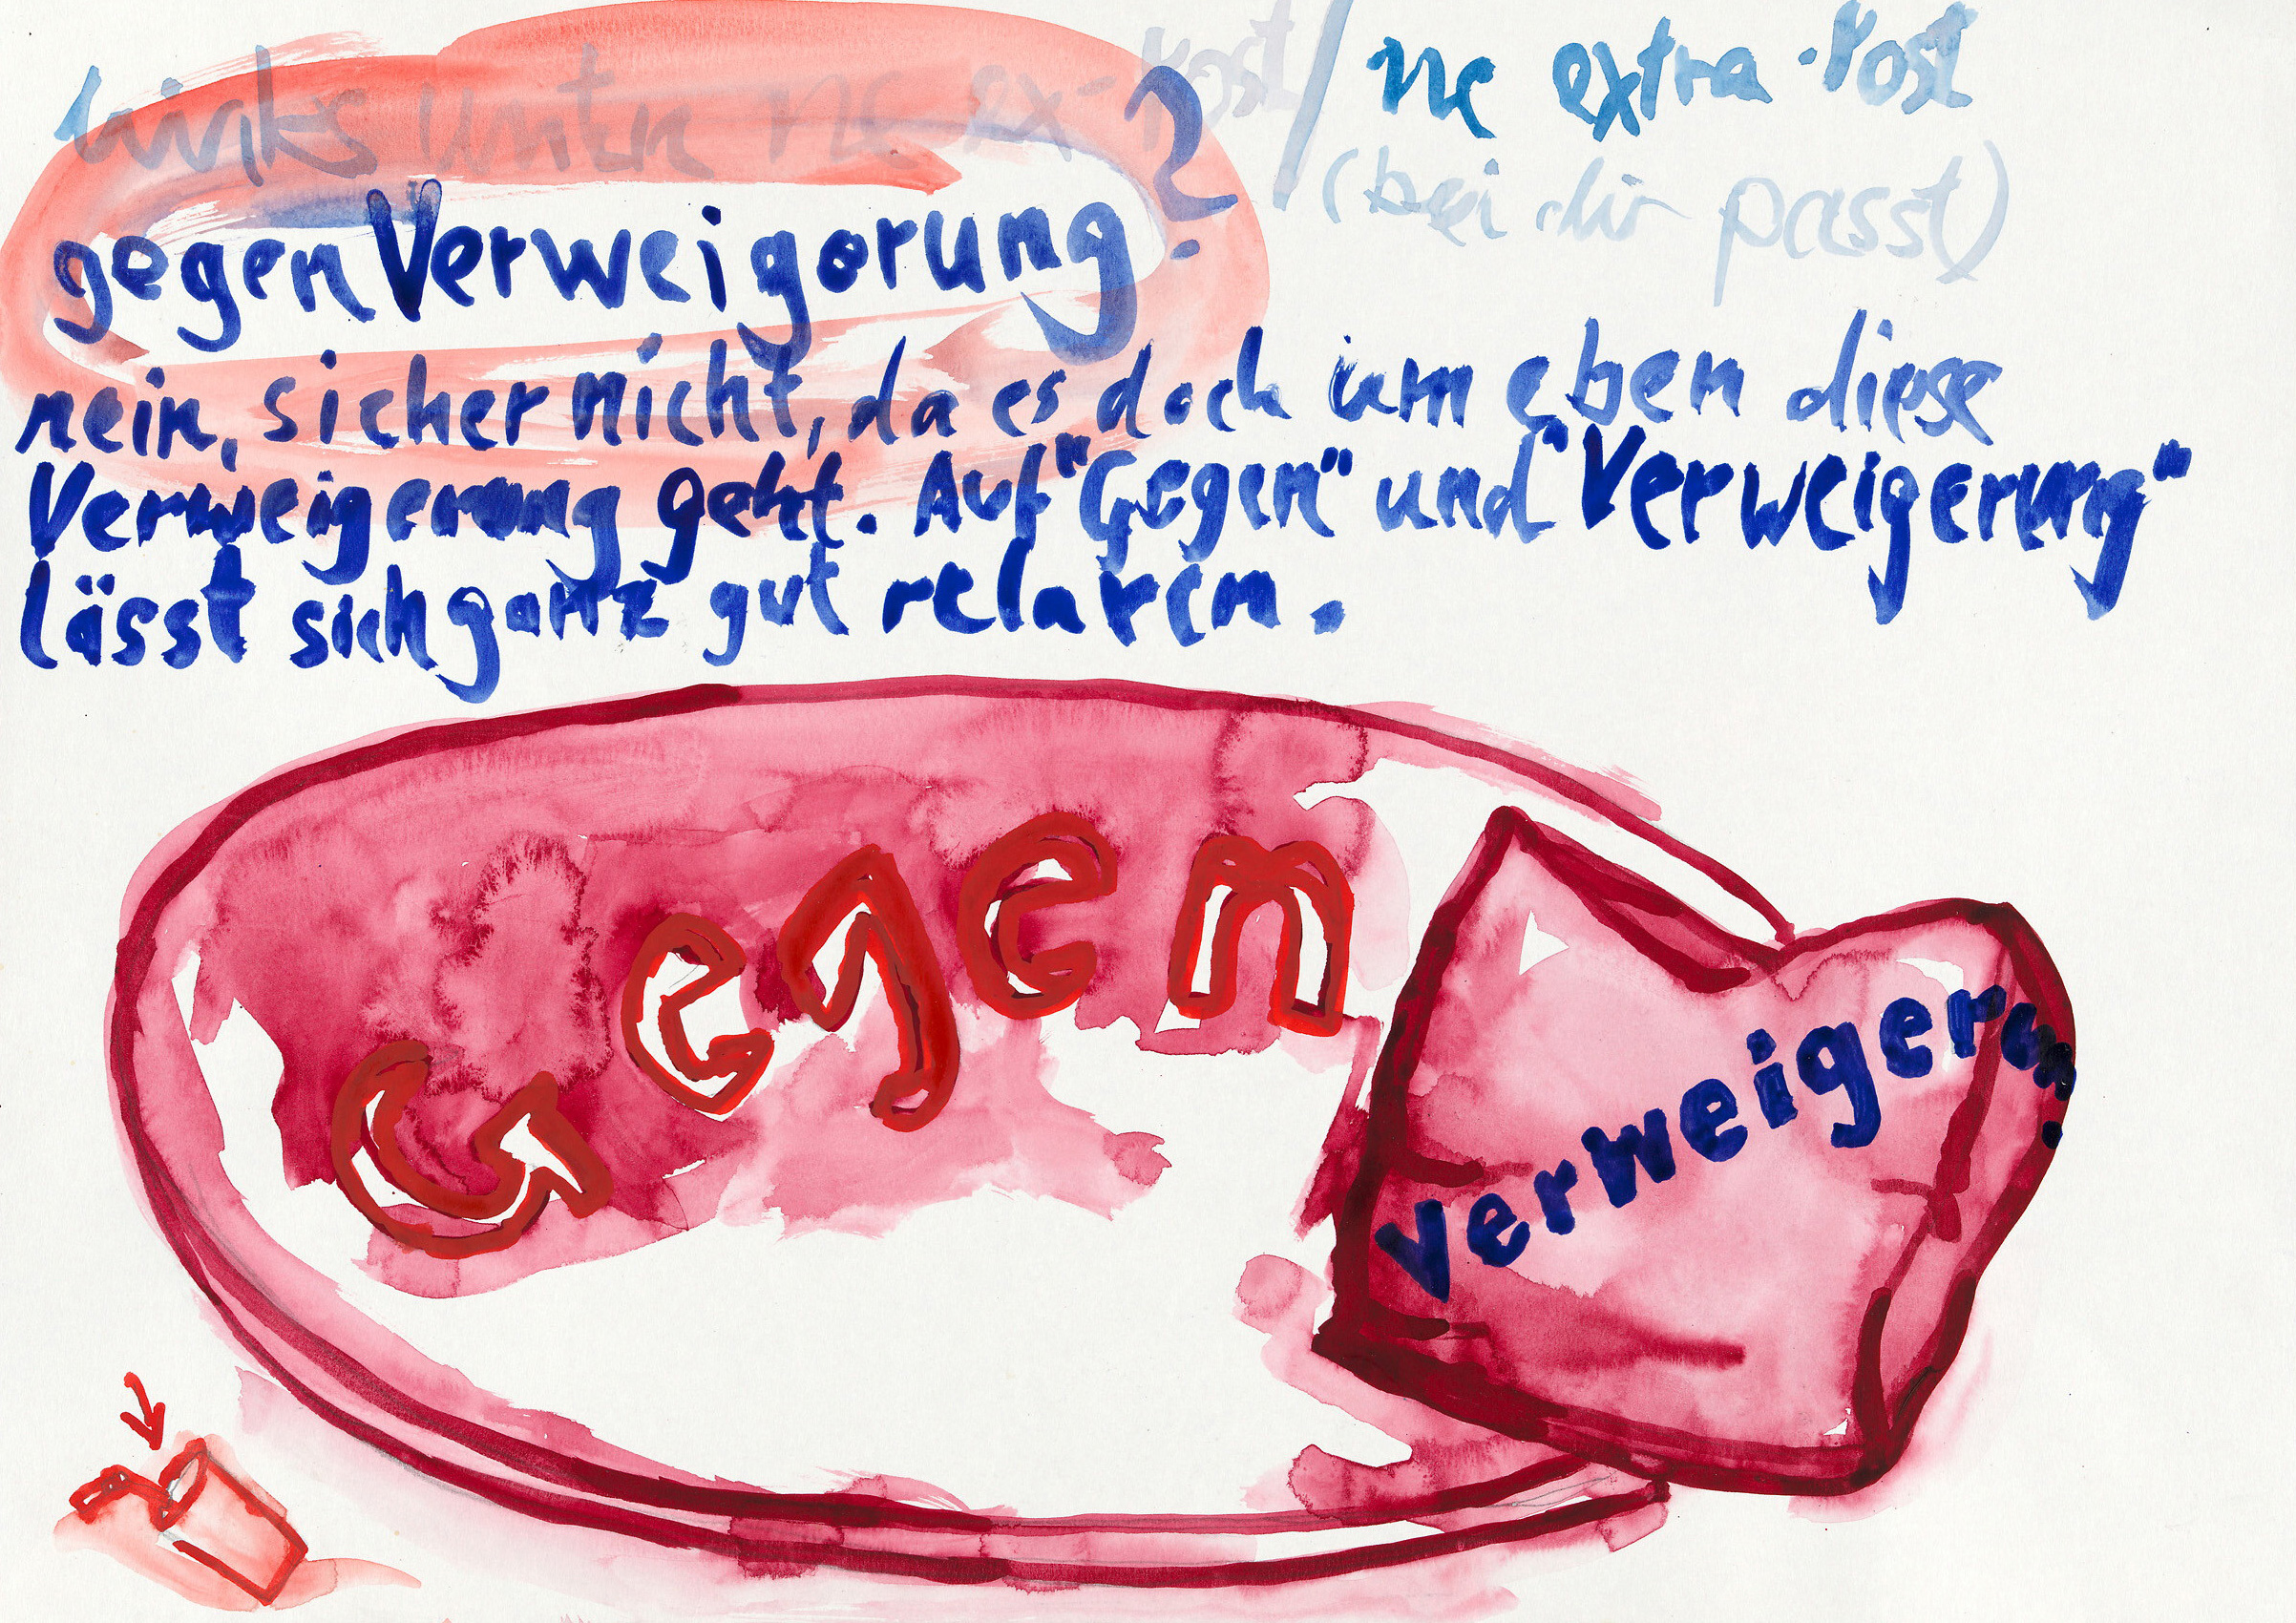 links unten ne ex-Post / ne extra-Post
(bei dir passt)
gegen Verweigerung?
nein, sicher nicht, da es doch um eben diese
Verweigerung geht. Auf "Gegen" und "Verweigerung"
lässt sich ganz gut relaxen.
Gegen
verweigerun